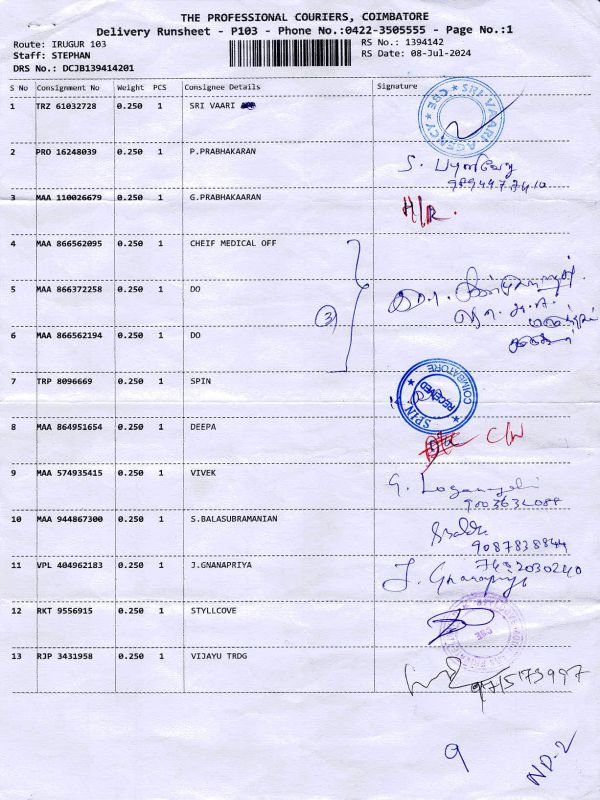 THE PROFESSIONAL COURIERS, COIMBATORE
Delivery Runsheet - P103 - Phone No.:0422-3505555 - Page No.:1
Route: IRUGUR 103 RS No.: 1394142
Staff: STEPHAN RS Date: 08-Jul-2024
DRS No.: DCJB139414201
S No Consignment No Weight PCS Consignee Details Signature
1 TRZ 61032728 0.250 1 SRI VAARI
SRI VAARI AGENCY CBE
2 PRO 16248039 0.250 1 P.PRABHAKARAN
S.
3 MAA 110026679 0.250 1 G.PRABHAKAARAN
H/R.
4 MAA 866562095 0.250 1 CHEIF MEDICAL OFF
5 MAA 866372258 0.250 1 DO
3
6 MAA 866562194 0.250 1 DO
7 TRP 8096669 0.250 1 SPIN
SPIN COIMBATORE RECEIVED
8 MAA 864951654 0.250 1 DEEPA
9 MAA 574935415 0.250 1 VIVEK
10 MAA 944867300 0.250 1 S.BALASUBRAMANIAN
9087838844
11 VPL 404962183 0.250 1 J.GNANAPRIYA
J. Gnanapriya
12 RKT 9556915 0.250 1 STYLLCOVE
CBE
13 RJP 3431958 0.250 1 VIJAYU TRDG
9715173997
9
ND-2